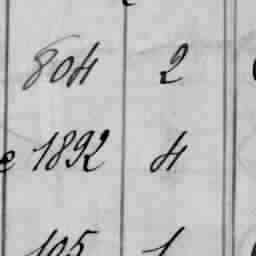 804 2
e 1892 4
105 1